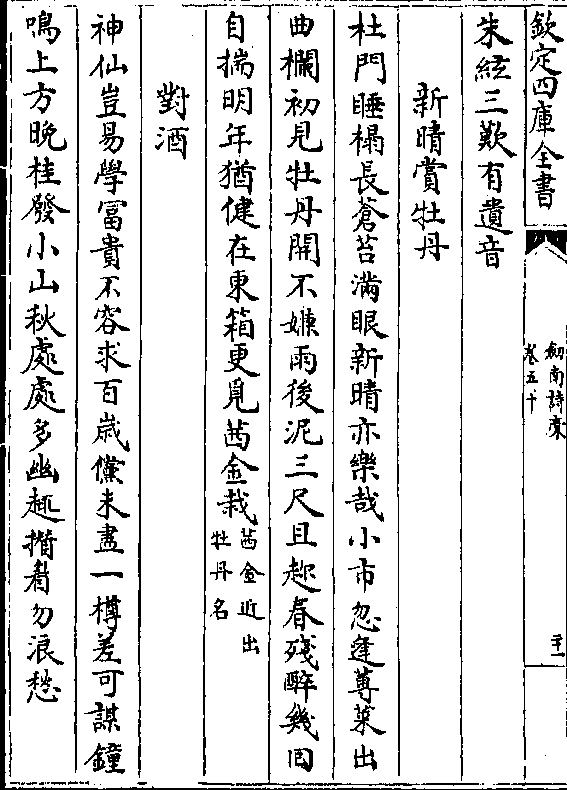 欽定四庫全書
劒南詩藁
卷五十
二十一
朱絃三歎有遺音
新晴賞牡丹
杜門睡榻長蒼苔滿眼新晴亦樂哉小市忽逢蓴菜出
曲欄初見牡丹開不嫌雨後泥三尺且趂春殘醉幾回
自揣明年猶健在東箱更覓茜金栽茜金近出
牡丹名
對酒
神仙豈易學富貴不容求百歲儻未盡一樽差可謀鐘
鳴上方晚桂發小山秋處處多幽趣揩看勿浪愁